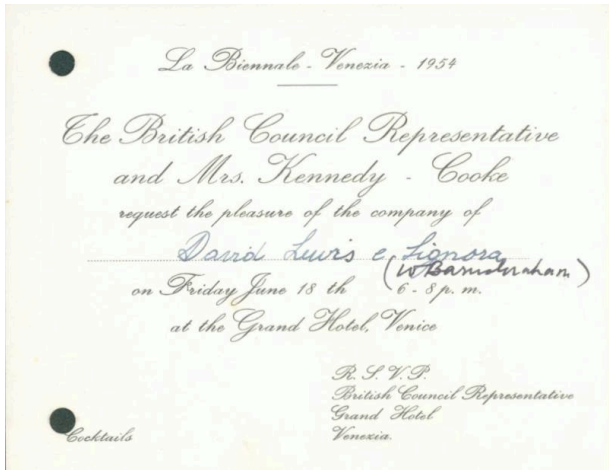 La Biennale - Venezia - 1954
The British Council Representative
and Mrs. Kennedy - Cooke
request the pleasure of the company of
David Lewis e Signora
(W Barns Graham)
on Friday June 18 th 6 - 8 p. m.
at the Grand Hotel, Venice
R. S. V. P.
British Council Representative
Grand Hotel
Venezia.
Cocktails